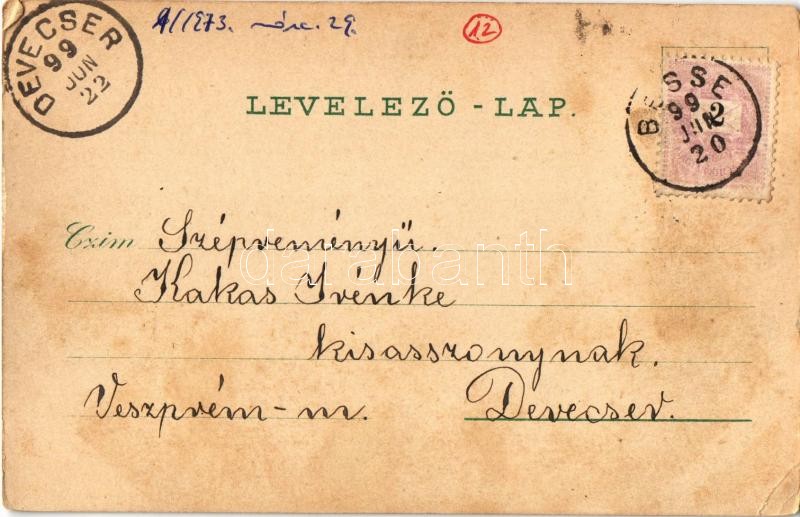 DEVECSER
99
JUN
22
1/1973. márc. 29.
12
LEVELEZŐ - LAP.
99
JUN
20
2
Czim Szépreményü.
Kakas Irénke
kisasszonynak.
Veszprém-m. Devecser.
darabanth